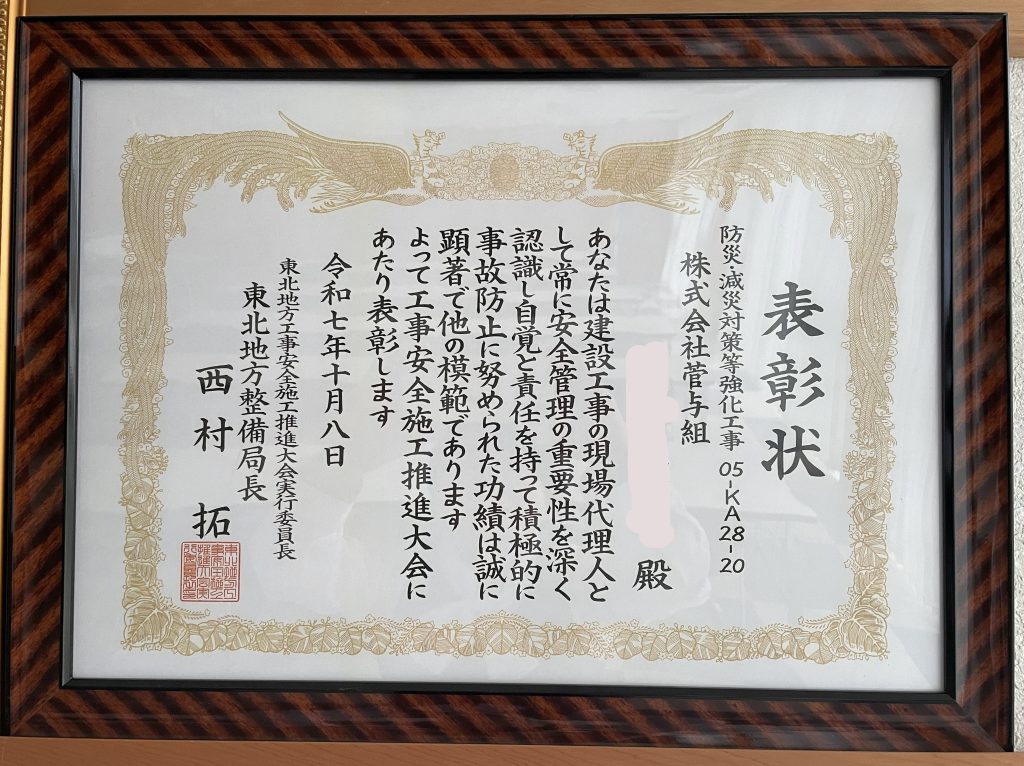 表彰状
防災・減災対策等強化工事 05-KA28-20
株式会社菅与組
殿
あなたは建設工事の現場代理人と
して常に安全管理の重要性を深く
認識し自覚と責任を持って積極的に
事故防止に努められた功績は誠に
顕著で他の模範であります
よって工事安全施工推進大会に
あたり表彰します
令和七年十月八日
東北地方工事安全施工推進大会実行委員長
東北地方整備局長
西村 拓